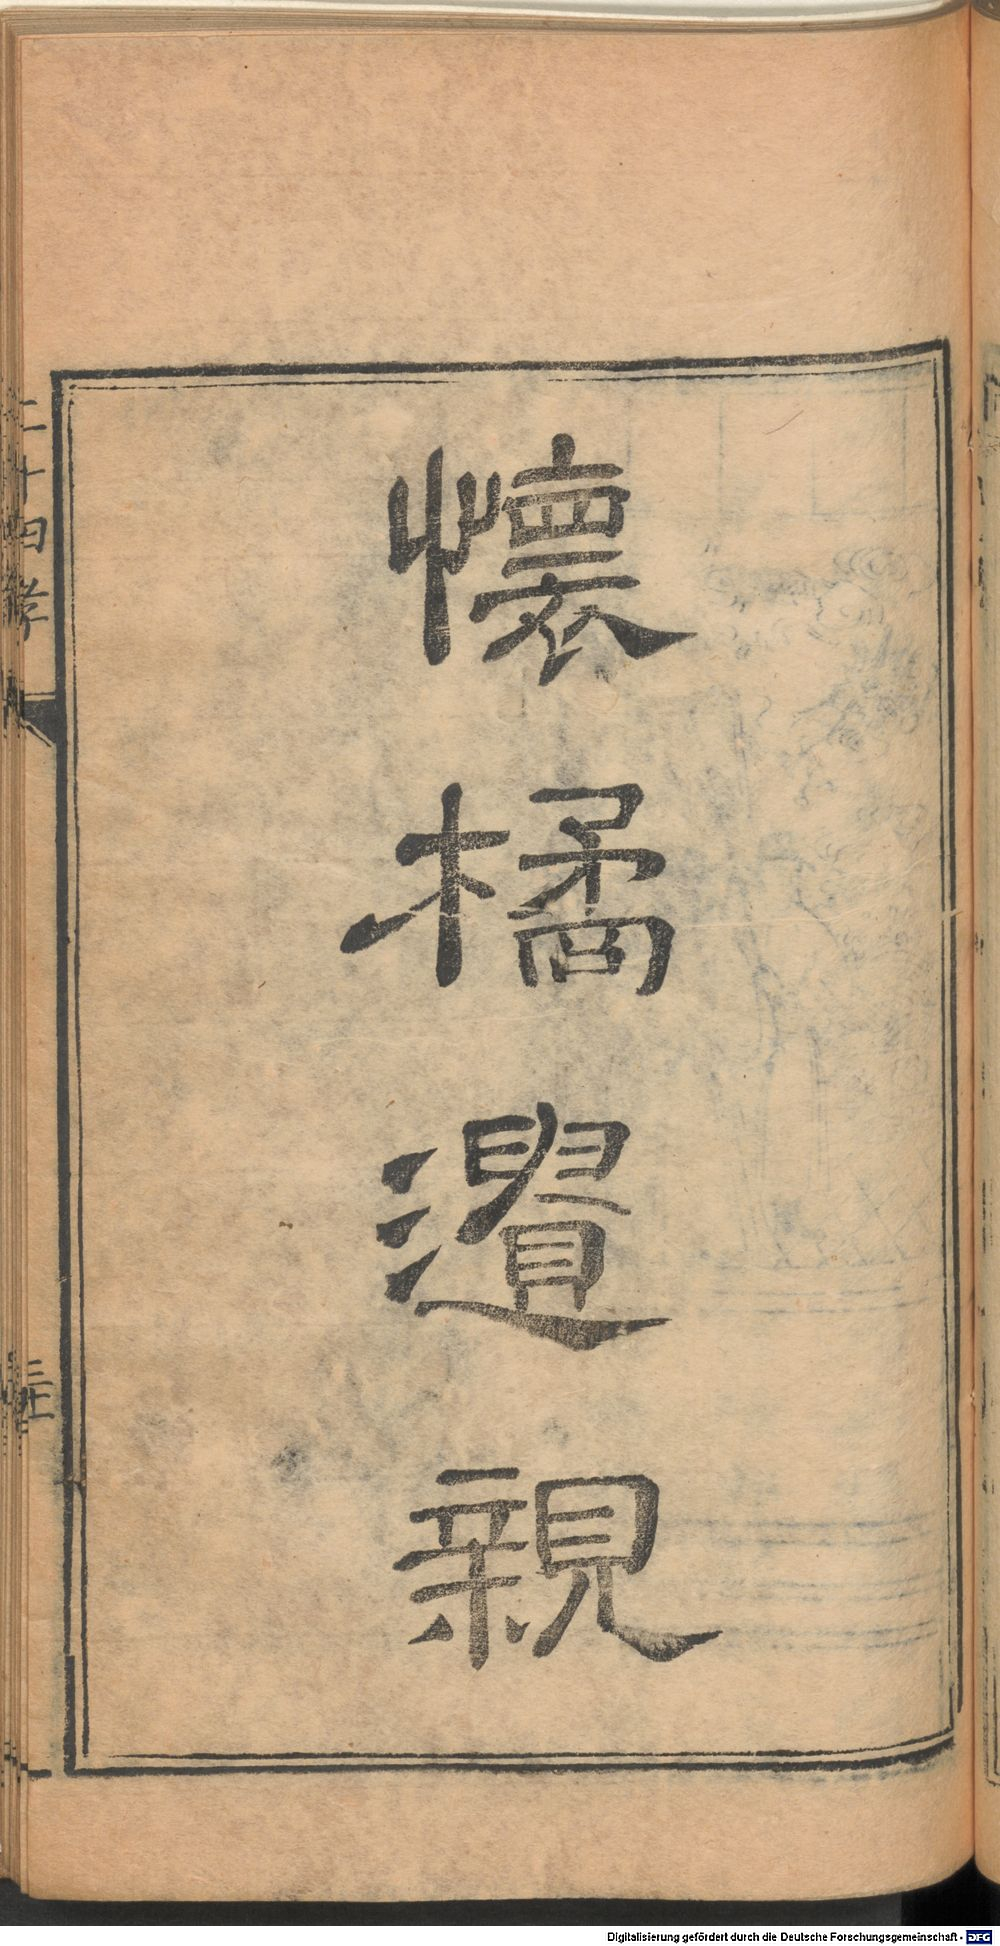 懷橘遺親
二十四孝
Digitalisierung gefördert durch die Deutsche Forschungsgemeinschaft - DFG